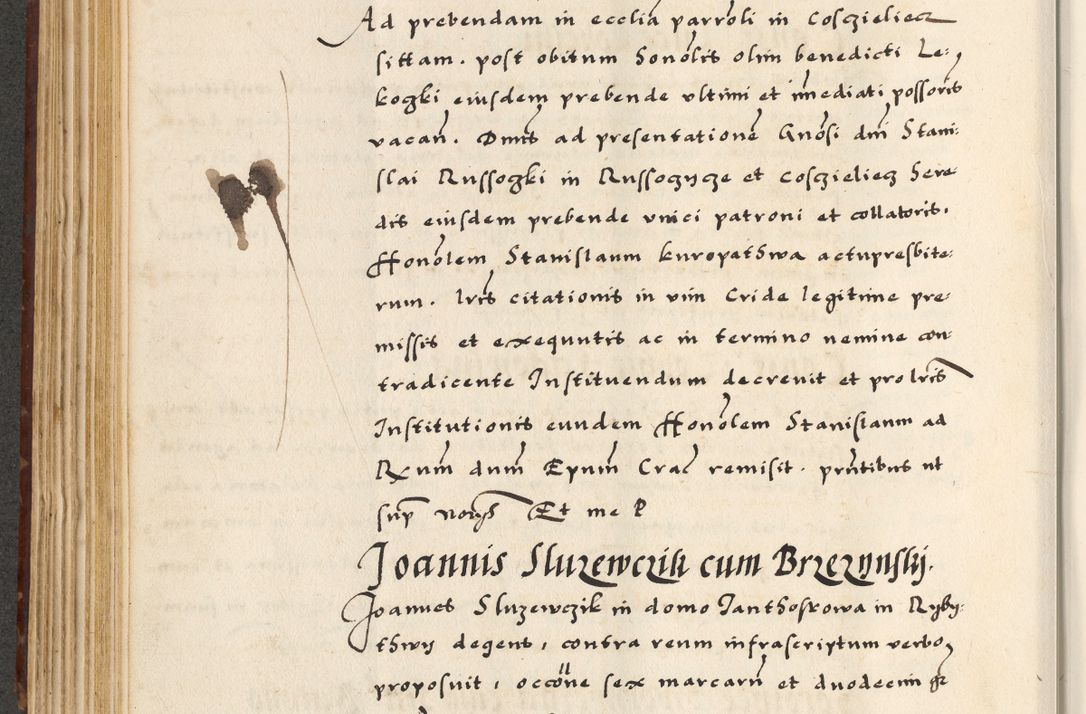 Ad prebendam in ecclia parroli in Cosczieliecz
sittam. post obitum Honolis olim benedicti Le:
kogzki eiusdem prebende ultimi et imediati possoris
vacan. Dnus ad presentatione Gnosi dni Stani:
slai Russogzki in Russoczycze et Cosczieliecz Here:
dis eiusdem prebende unici patroni et collatoris.
Honolem Stanislaum kuropathwa actupresbite:
rum. lris citationis in vim Cride legitime pre:
missis et exequutis ac in termino nemine con:
tradicente Instituendum decrevit et pro lris
Institutionis eundem Honolem Stanislaum ad
Rxum dnum Epum Crac remisit. pntibus ut
sup Et me P
Joannis Sluzewczik cum Brzezynskij.
Joannes Sluzewczik in domo Janthoskowa in Ryby:
thwy degens, contra reum infrascriptum verbo
proposuit, occone sex marcarum et duodecim gr